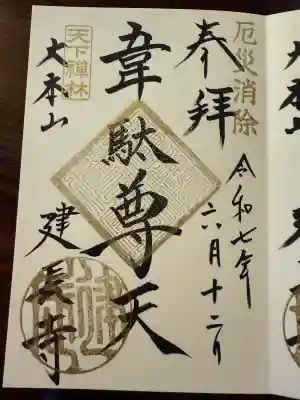 厄災消除
奉拝
令和七年
六月十二日
韋駄尊天
天下禅林
大本山
建長寺